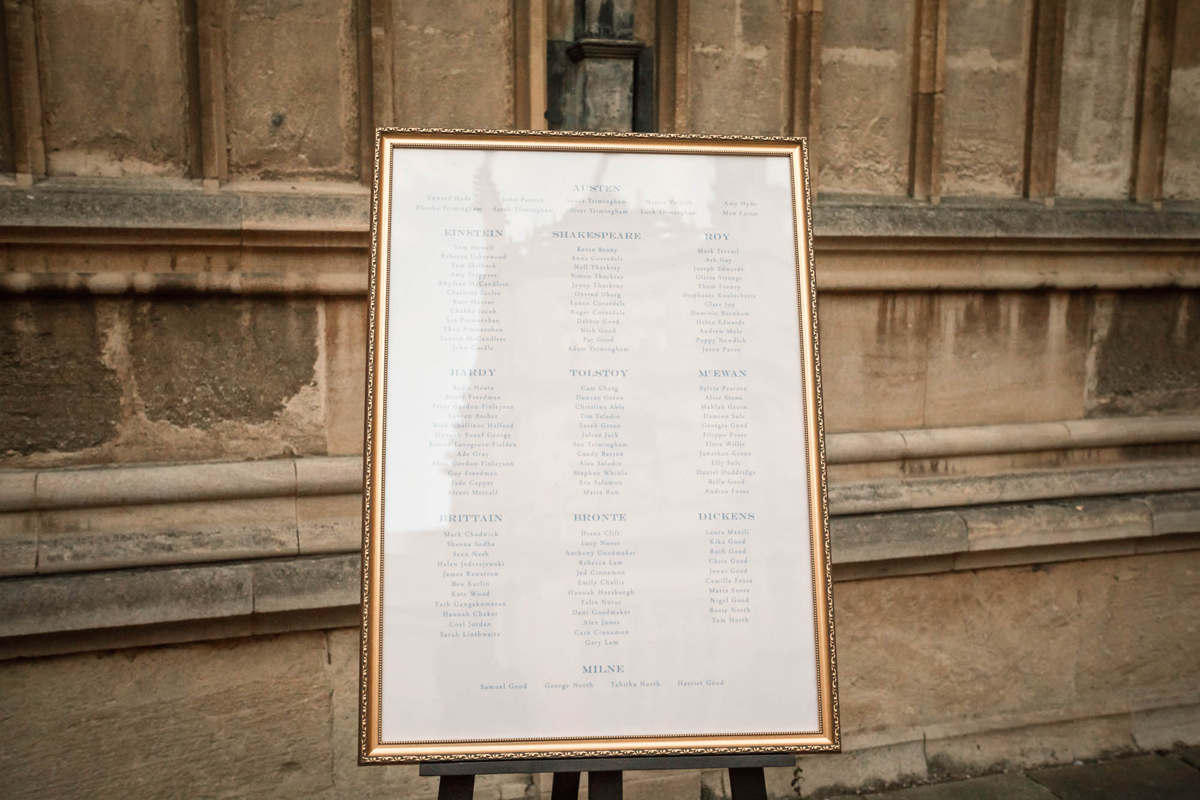 AUSTEN
Edward Hyde John Parrish Laura Trimingham Marian Parrish Amy Hyde
Phoebe Trimingham Sarah Trimingham Oliver Trimingham Leah Trimingham Matt Farrar
EINSTEIN
Tom Howall
Rebecca Usherwood
Tom Skirbeck
Amy
McCandless
Charlotte
Kate
Jacob
Lauren McCandless
John
SHAKESPEARE
Kevin Beaty
Anna Coverdale
Nell Thackray
Simon Thackray
Jenny Thackray
Øyvind Uberg
Lynne Coverdale
Roger Coverdale
Debbie Good
Nick Good
Pat Good
Adam Trimingham
ROY
Mark Trevail
Ash Guy
Joseph Edwards
Olivia Strange
Thom
Stephanie
Clare Joy
Dominic Burnham
Helen Edwards
Andrew Male
Poppy Newdick
Jason
HARDY
Sally Hoare
Harry Freedman
Peter Gordon-Finlayson
Lauren Archer
Challinor Halford
Hannah Yusuf-George
Lovegrove-Fielden
Ade Gray
Gordon-Finlayson
Guy Freedman
Jade Capper
Alexei Metcalf
TOLSTOY
Cam Uberg
Duncan Green
Christine Able
Tim Saladin
Sarah Green
Julian Jack
Sue Trimingham
Candy Barton
Alex Saladin
Stephen Whittle
Eve Salomon
Maria Ron
McEWAN
Sylvia Pearson
Alice Stone
Mahlah Green
Damion Sole
Georgia Good
Filippo Fossa
Flore Willis
Jonathan Green
Elly Sole
Daniel Doddridge
Bella Good
Andrea Fossa
BRITTAIN
Mark Chadwick
Sheena Sodha
Sean Nash
Helen Jedrzejewski
James Rowstron
Ben Kerlin
Kate Wood
Yath Gangakumaran
Hannah Chuker
Coel Jordan
Sarah Linthwaite
BRONTE
Diane Clift
Lucy Nurse
Anthony Goodmaker
Rebecca Lam
Jed Cinnamon
Emily Challis
Hannah Horsburgh
Felix Nurse
Dani Goodmaker
Alex Jones
Cara Cinnamon
Gary Lam
DICKENS
Laura Manili
Kika Good
Ruth Good
Chris Good
Jenni Good
Camilla Fossa
Maria Fossa
Nigel Good
Rosie North
Tom North
MILNE
Samuel Good George North Tabitha North Harriet Good